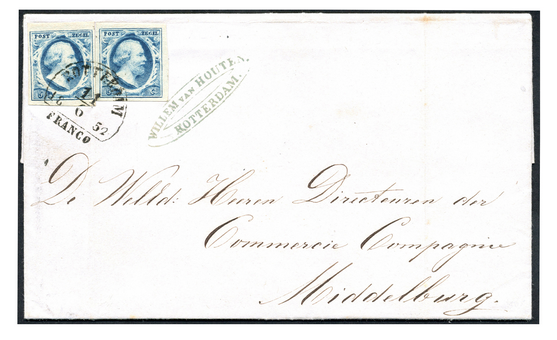 POST ZEGEL POST ZEGEL
ROTTERDAM
11
6
52
FRANCO
WILLEM VAN HOUTEN,
ROTTERDAM.
De WelEd: Heeren Directeuren der
Commercie Compagnie
Middelburg.